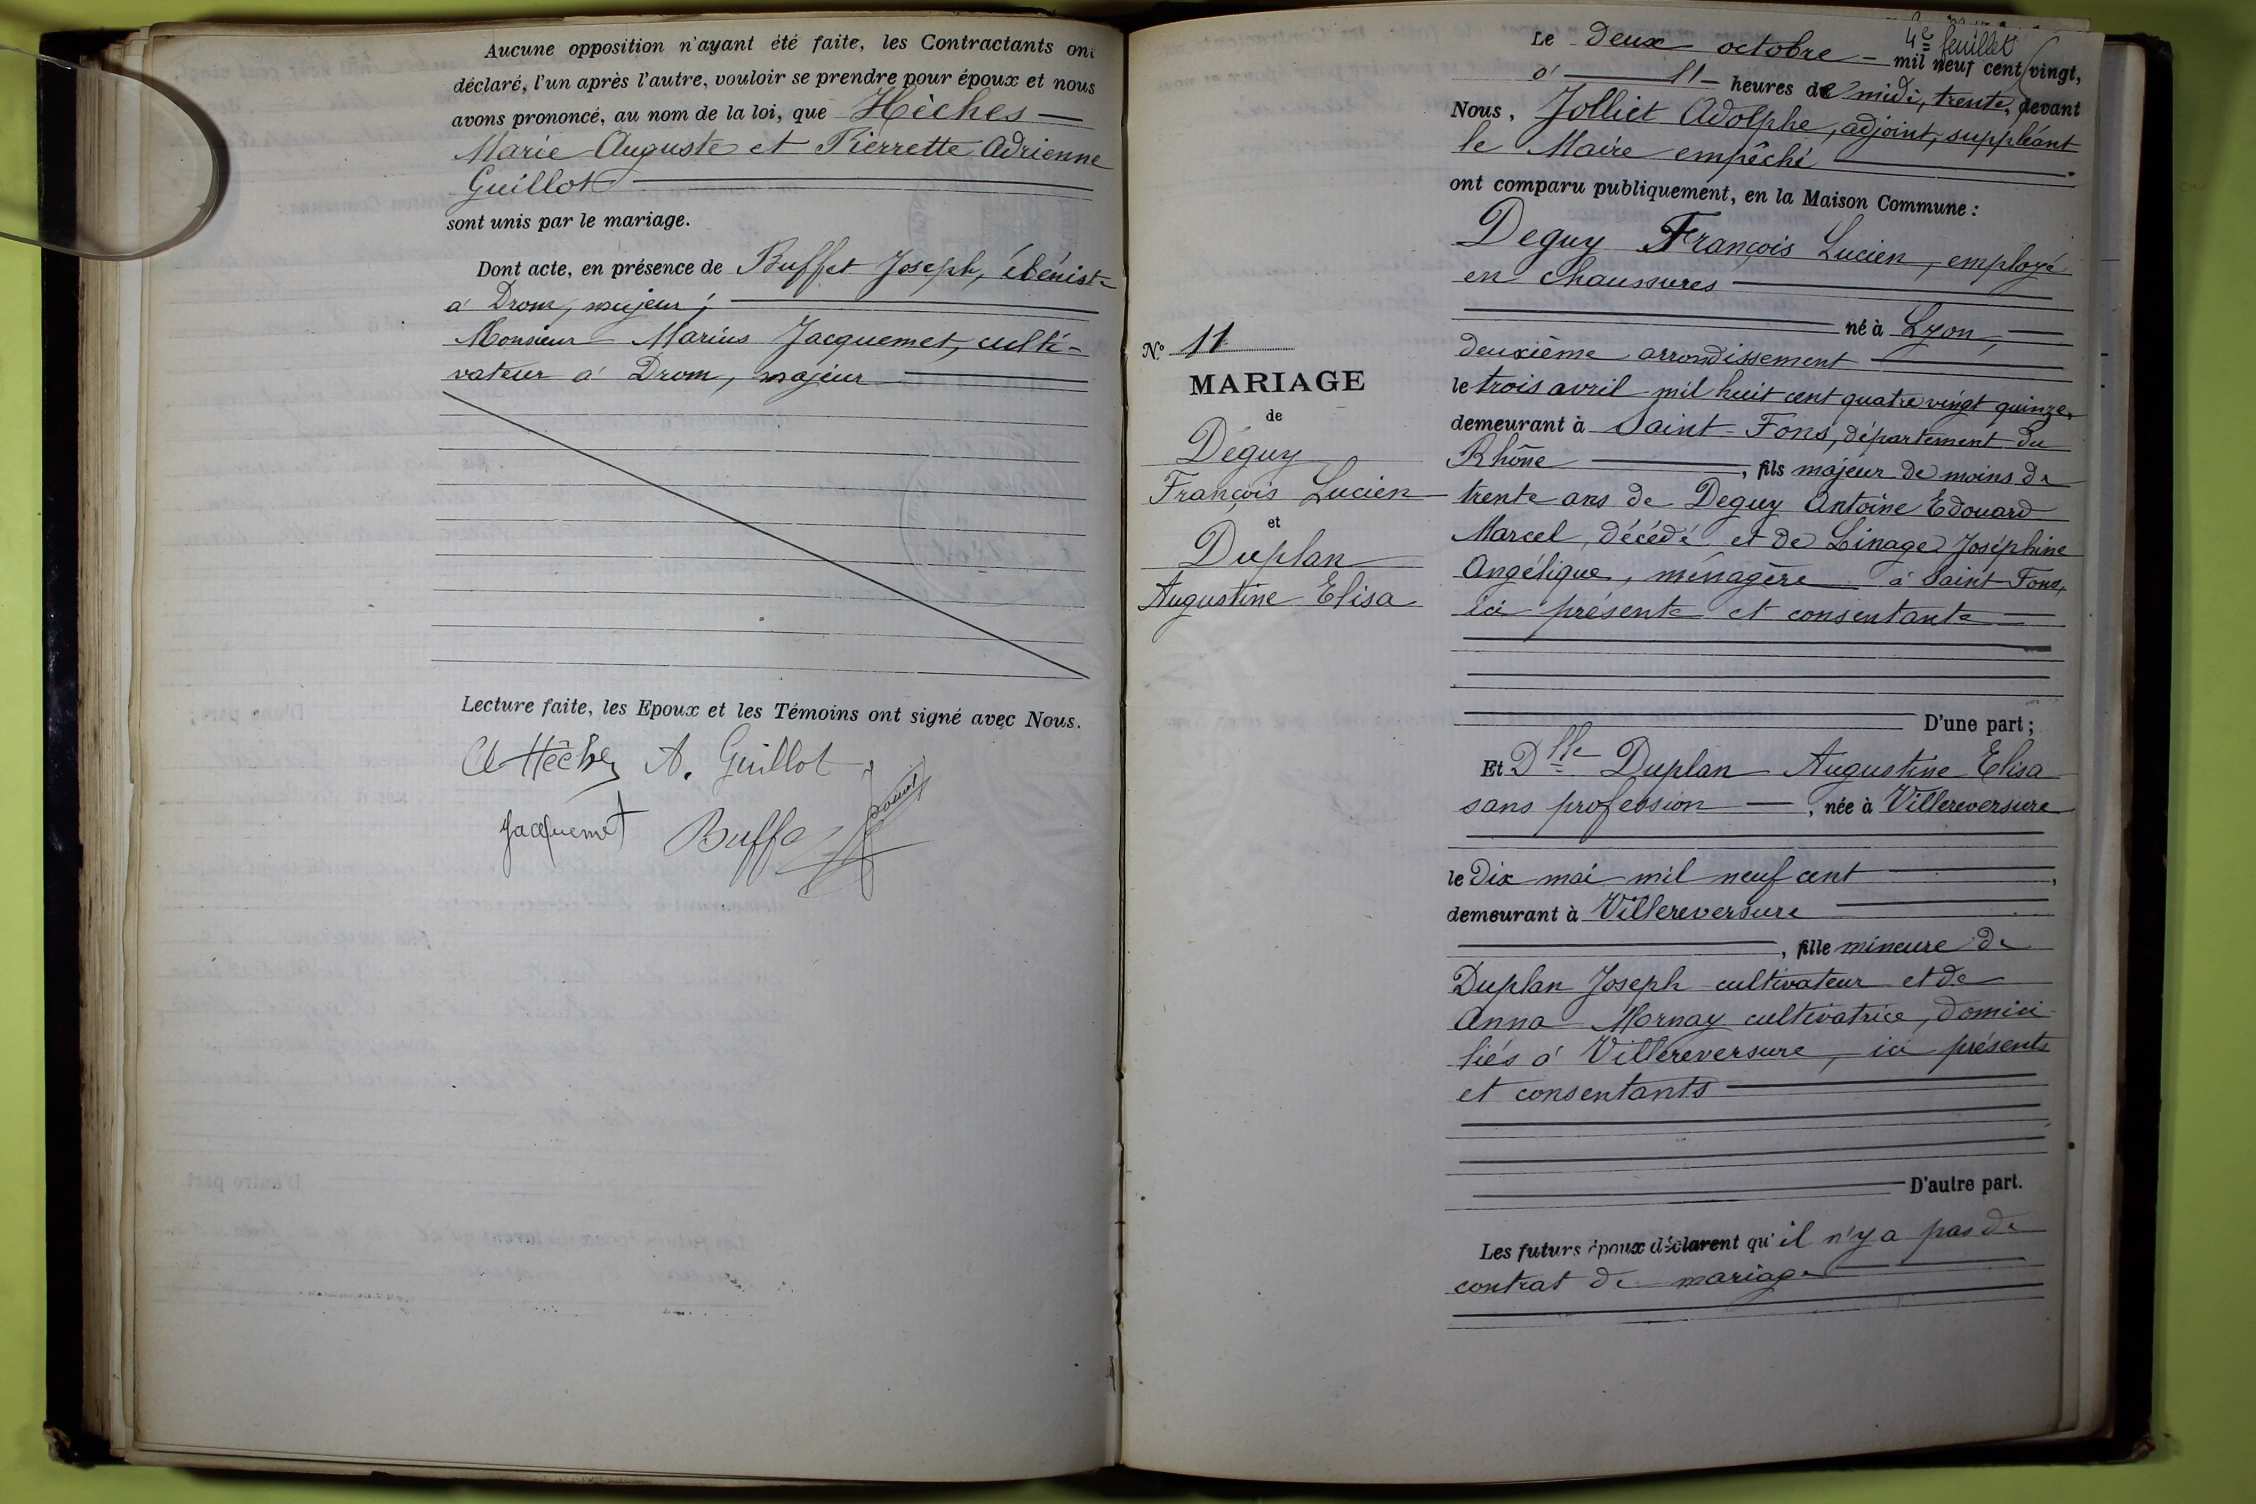 Aucune opposition n'ayant été faite, les Contractants ont
déclaré, l'un après l'autre, vouloir se prendre pour époux et nous
avons prononcé, au nom de la loi, que Hèches
Marie Auguste et Pierrette Adrienne
Guillot
sont unis par le mariage.
Dont acte, en présence de Buffet Joseph, ébéniste
à Drom, majeur ;
Monsieur Marius Jacquemet, culti-
vateur à Drom, majeur
Lecture faite, les Epoux et les Témoins ont signé avec Nous.
A Hèches A. Guillot
Jacquemet Buffet
4e feuillet
Le deux octobre mil neuf cent vingt,
à 11 heures de midi, trente, devant
Nous, Jolliet Adolphe, adjoint, suppléant
le Maire empêché
ont comparu publiquement, en la Maison Commune :
Deguy François Lucien, employé
en chaussures
né à Lyon,
deuxième arrondissement
le trois avril mil huit cent quatre vingt quinze,
demeurant à Saint-Fons, département du
Rhône, fils majeur de moins de
trente ans de Deguy Antoine Edouard
Marcel, décédé et de Linage Joséphine
Angélique, ménagère à Saint-Fons,
ici présente et consentante
D'une part ;
Et Dlle Duplan Augustine Elisa
sans profession, née à Villereversure
le dix mai mil neuf cent,
demeurant à Villereversure
, fille mineure de
Duplan Joseph cultivateur et de
Anna Mornay cultivatrice, domici-
liés à Villereversure, ici présents
et consentants
D'autre part.
Les futurs époux déclarent qu'il n'y a pas de
contrat de mariage
N° 11
MARIAGE
de
Déguy
François Lucien
et
Duplan
Augustine Elisa